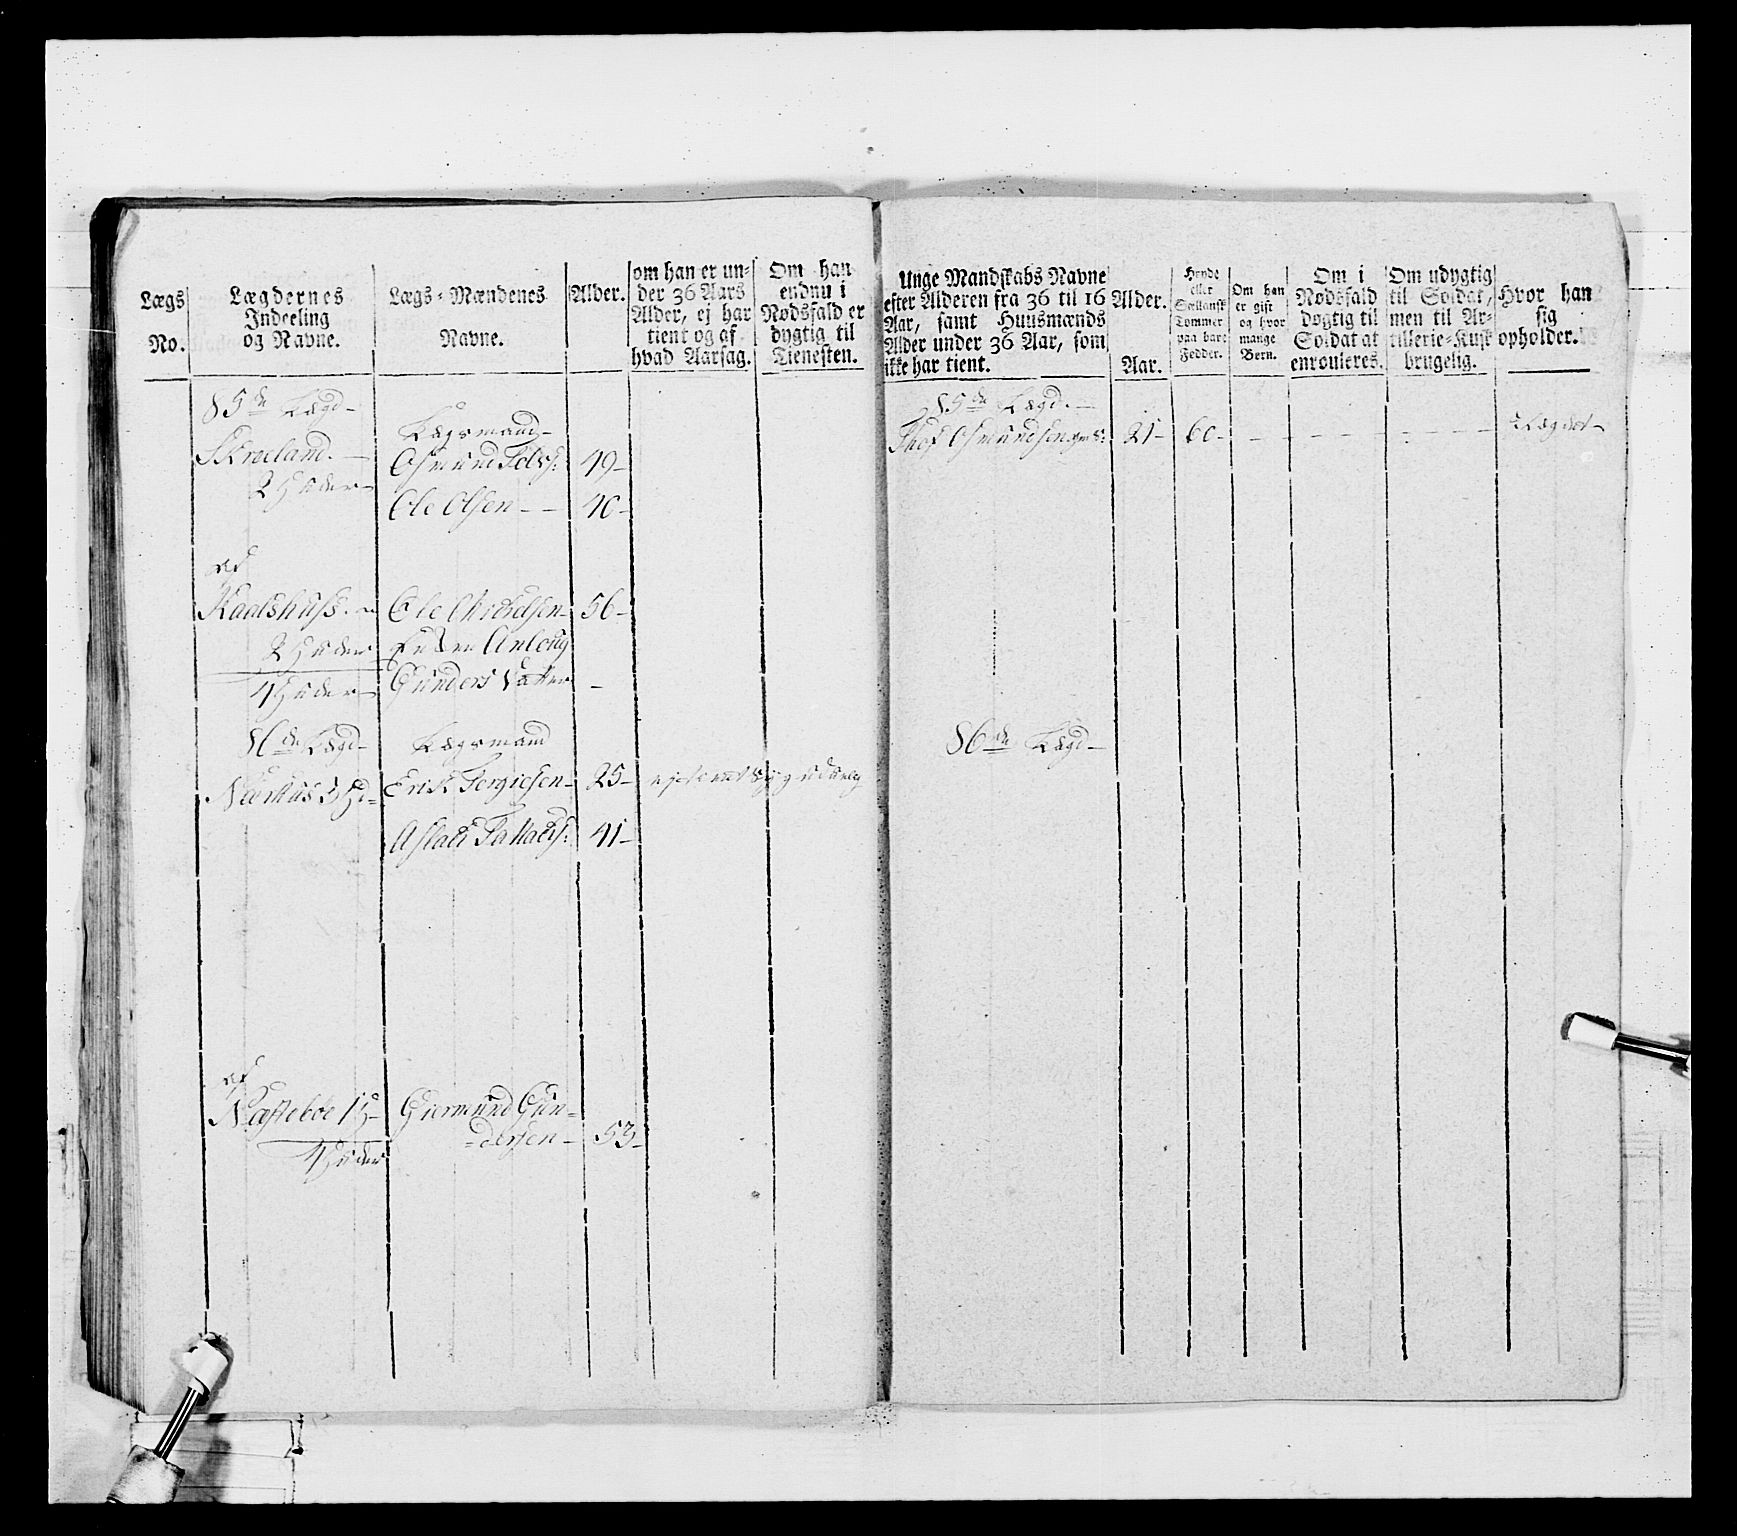 Lægs
No.
Lægdernes
Indeeling
og Navne.
Lægs-Mændenes
Navne.
Alder.
om han er un-
der 36 Aars
Alder, ej har
tient og af
hvad Aarsag.
Om han
endnu i
Nødsfald er
dygtig til
Tienesten.
85de Lægd
Lægsmand
Skreeland.
Osmund
49
2 Huder
Ole Olsen
40
Ole
56
2 Huder
4 Huder
Gunders
86de Lægd
Lægsmand
Erik Tergiesen
25
Aslak
41
1 H
Giermund Gun-
-dersen
53
4 Huder
Unge Mandskabs Navne
efter Alderen fra 36 til 16
Aar, samt Huusmænds
Alder under 36 Aar, som
ikke har tient.
Alder.
Aar.
Høyde
eller
Siellansk
Tommer
paa bare
Fødder.
Om han
er gift
og hvor
mange
Børn.
Om i
Nødsfald
dygtig til
Soldat at
enroulleres.
Om udygtig
til Soldat,
men til Ar-
tillerie-Kusk
brugelig.
Hvor han
sig
opholder.
85de Lægd.
Osmundsen
21
60
i Lægdet
86de Lægd